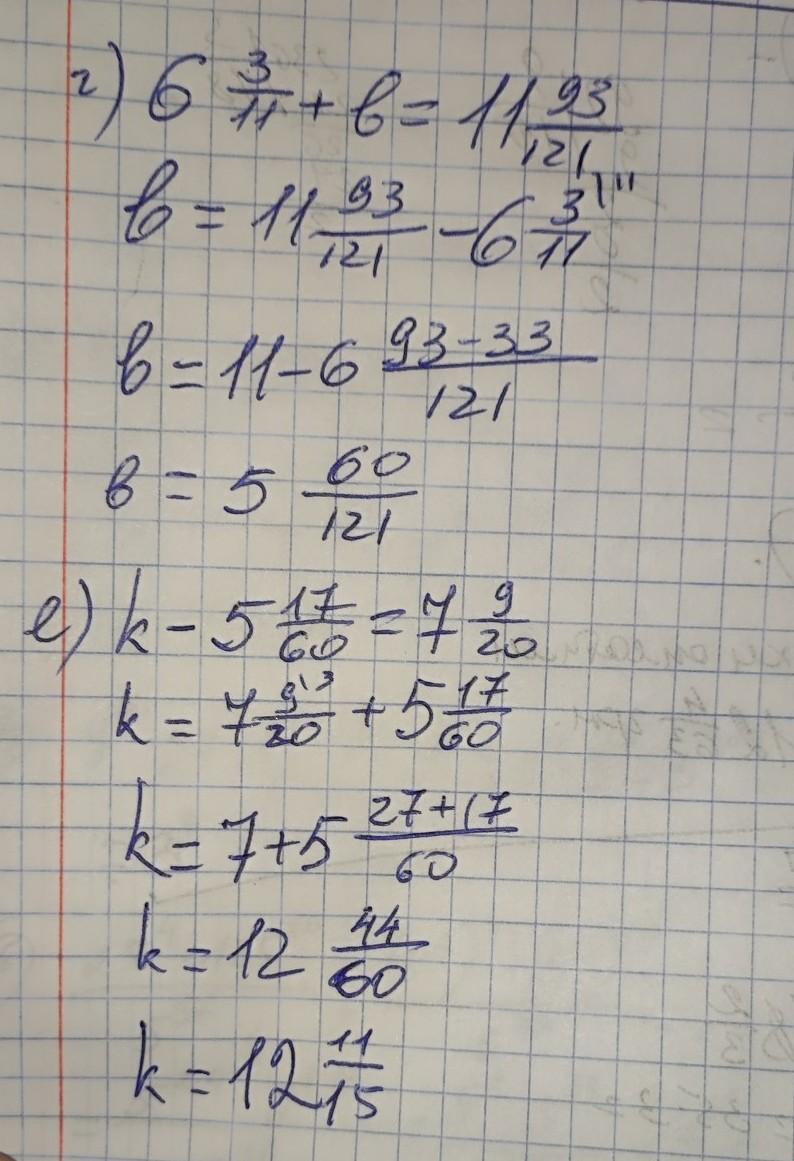 г) 6 3/11 + в = 11 93/121
в = 11 93/121 - 6 3/11 \11
в = 11 - 6 (93 - 33)/121
в = 5 60/121
е) k - 5 17/60 = 7 9/20
k = 7 9/20 \3 + 5 17/60
k = 7 + 5 (27 + 17)/60
k = 12 44/60
k = 12 11/15